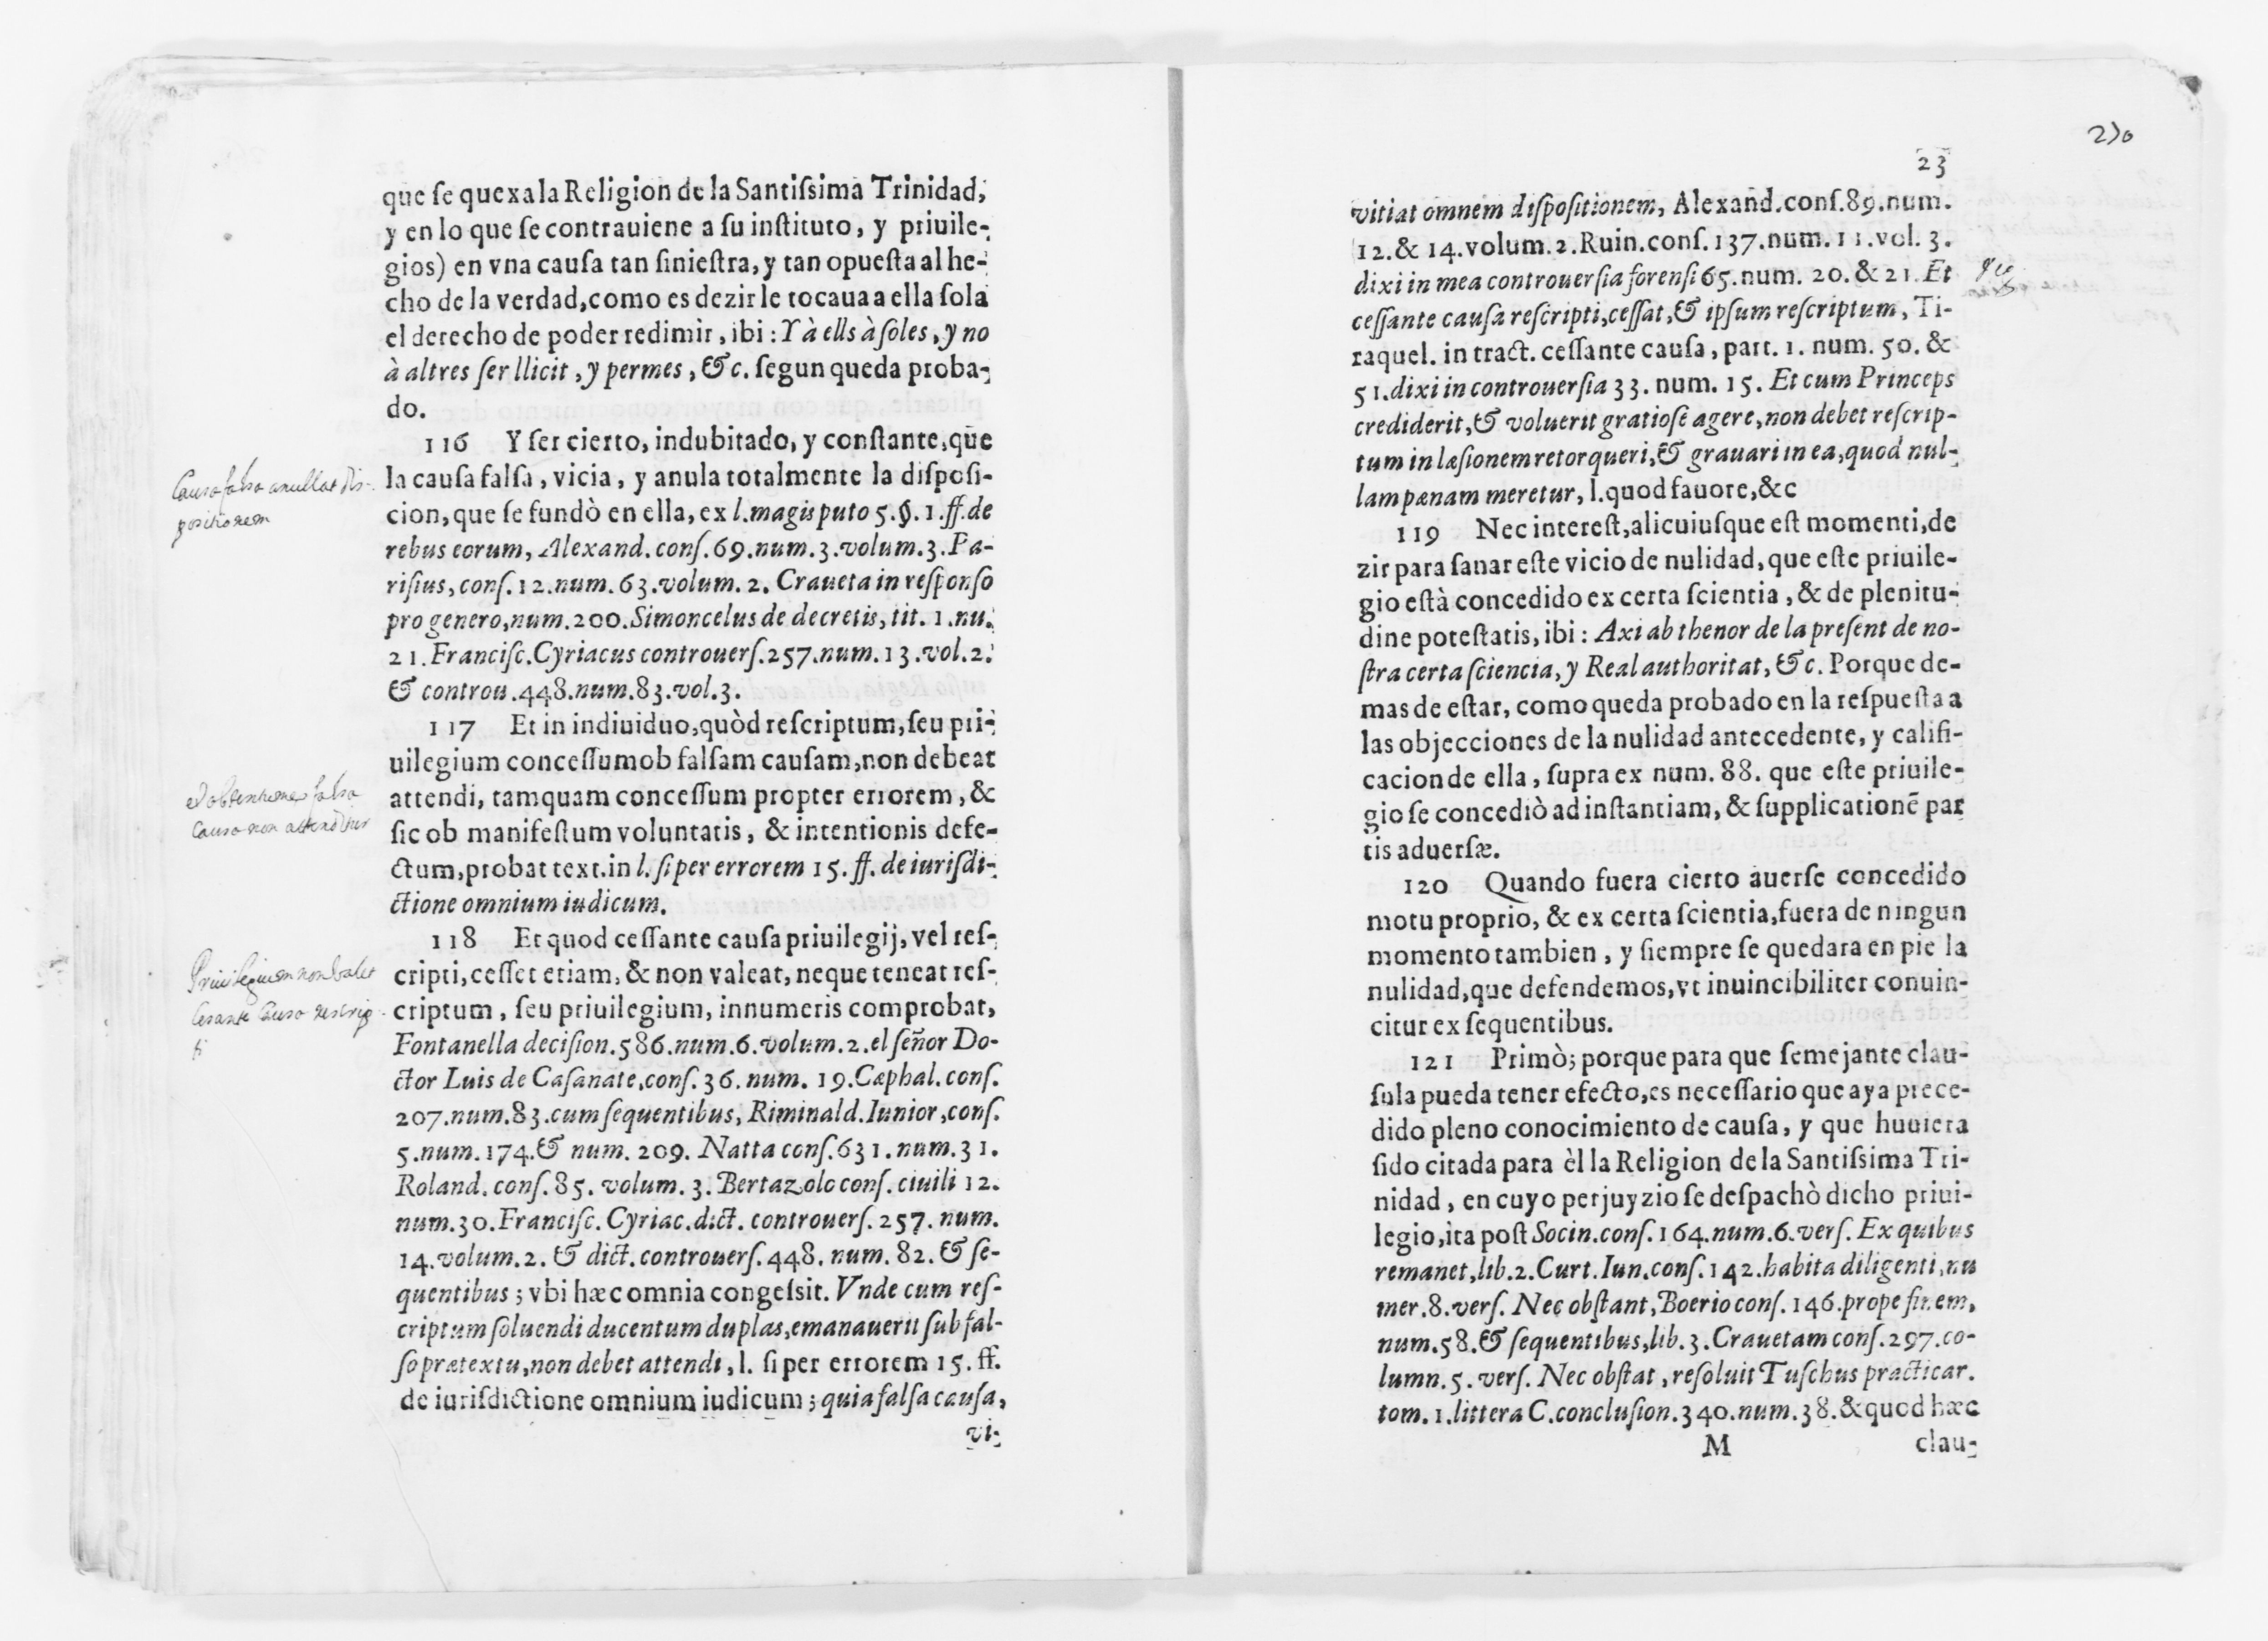 que ſe quexa la Religion de la Santiſsima Trinidad,
y en lo que ſe contrauiene a ſu inſtituto, y priuile-
gios) en vna cauſa tan ſinieſtra, y tan opueſta al he-
cho de la verdad, como es dezir le tocaua a ella ſola
el derecho de poder redimir, ibi: Y à ells à ſoles, y no
à altres ſer llicit, y permes, &c. ſegun queda proba-
do.
116 Y ſer cierto, indubitado, y conſtante, que
la cauſa falſa, vicia, y anula totalmente la diſpoſi-
cion, que ſe fundò en ella, ex l. magis puto 5. §. 1. ff. de
rebus eorum, Alexand. conſ. 69. num. 3. volum. 3. Pa-
riſius, conſ. 12. num. 63. volum. 2. Craueta in reſponſo
pro genero, num. 200. Simoncelus de decretis, tit. 1. nu.
21. Franciſc. Cyriacus controuerſ. 257. num. 13. vol. 2.
& controu. 448. num. 83. vol. 3.
117 Et in indiuiduo, quòd reſcriptum, ſeu pri-
uilegium conceſſum ob falſam cauſam, non debeat
attendi, tamquam conceſſum propter errorem, &
ſic ob manifeſtum voluntatis, & intentionis defe-
ctum, probat text. in l. ſi per errorem 15. ff. de iuriſdi-
ctione omnium iudicum.
118 Et quod ceſſante cauſa priuilegij, vel reſ-
cripti, ceſſet etiam, & non valeat, neque teneat reſ-
criptum, ſeu priuilegium, innumeris comprobat,
Fontanella deciſion. 586. num. 6. volum. 2. el ſeñor Do-
ctor Luis de Caſanate, conſ. 36. num. 19. Cæphal. conſ.
207. num. 83. cum ſequentibus, Riminald. Iunior, conſ.
5. num. 174. & num. 209. Natta conſ. 631. num. 31.
Roland. conſ. 85. volum. 3. Bertazolo conſ. ciuili 12.
num. 30. Franciſc. Cyriac. dict. controuerſ. 257. num.
14. volum. 2. & dict. controuerſ. 448. num. 82. & ſe-
quentibus; vbi hæc omnia congeſsit. Vnde cum reſ-
criptum ſoluendi ducentum duplas, emanauerit ſub fal-
ſo prætextu, non debet attendi, l. ſi per errorem 15. ff.
de iuriſdictione omnium iudicum; quia falſa cauſa,
vi-
Causa falsa anullat dis-
positionem
et obtentum ex falsa
causa non attenditur
Priuilegium non valet
cesante causa rescrip-
ti
230
23
vitiat omnem diſpoſitionem, Alexand. conſ. 89. num.
12. & 14. volum. 2. Ruin. conſ. 137. num. 11. vol. 3.
dixi in mea controuerſia forenſi 65. num. 20. & 21. Et
ceſſante cauſa reſcripti, ceſſat, & ipſum reſcriptum, Ti-
raquel. in tract. ceſſante cauſa, part. 1. num. 50. &
51. dixi in controuerſia 33. num. 15. Et cum Princeps
crediderit, & voluerit gratioſe agere, non debet reſcrip-
tum in læſionem retorqueri, & grauari in ea, quod nul-
lam pænam meretur, l. quod fauore, &c
119 Nec intereſt, alicuiuſque eſt momenti, de
zir para ſanar eſte vicio de nulidad, que eſte priuile-
gio eſtà concedido ex certa ſcientia, & de plenitu-
dine poteſtatis, ibi: Axi ab thenor de la preſent de no-
ſtra certa ſciencia, y Real authoritat, &c. Porque de-
mas de eſtar, como queda probado en la reſpueſta a
las objecciones de la nulidad antecedente, y califi-
cacion de ella, ſupra ex num. 88. que eſte priuile-
gio ſe concediò ad inſtantiam, & ſupplicationē par
tis aduerſæ.
120 Quando fuera cierto auerſe concedido
motu proprio, & ex certa ſcientia, fuera de ningun
momento tambien, y ſiempre ſe quedara en pie la
nulidad, que defendemos, vt inuincibiliter conuin-
citur ex ſequentibus.
121 Primò; porque para que ſemejante clau-
ſula pueda tener efecto, es neceſſario que aya prece-
dido pleno conocimiento de cauſa, y que huuiera
ſido citada para èl la Religion de la Santiſsima Tri-
nidad, en cuyo perjuyzio ſe deſpachò dicho priui-
legio, ita poſt Socin. conſ. 164. num. 6. verſ. Ex quibus
remanet, lib. 2. Curt. Iun. conſ. 142. habita diligenti, nu
mer. 8. verſ. Nec obſtant, Boerio conſ. 146. prope finem,
num. 58. & ſequentibus, lib. 3. Crauetam conſ. 297. co-
lumn. 5. verſ. Nec obſtat, reſoluit Tuſchus practicar.
tom. 1. littera C. concluſion. 340. num. 38. & quod hæc
M clau-